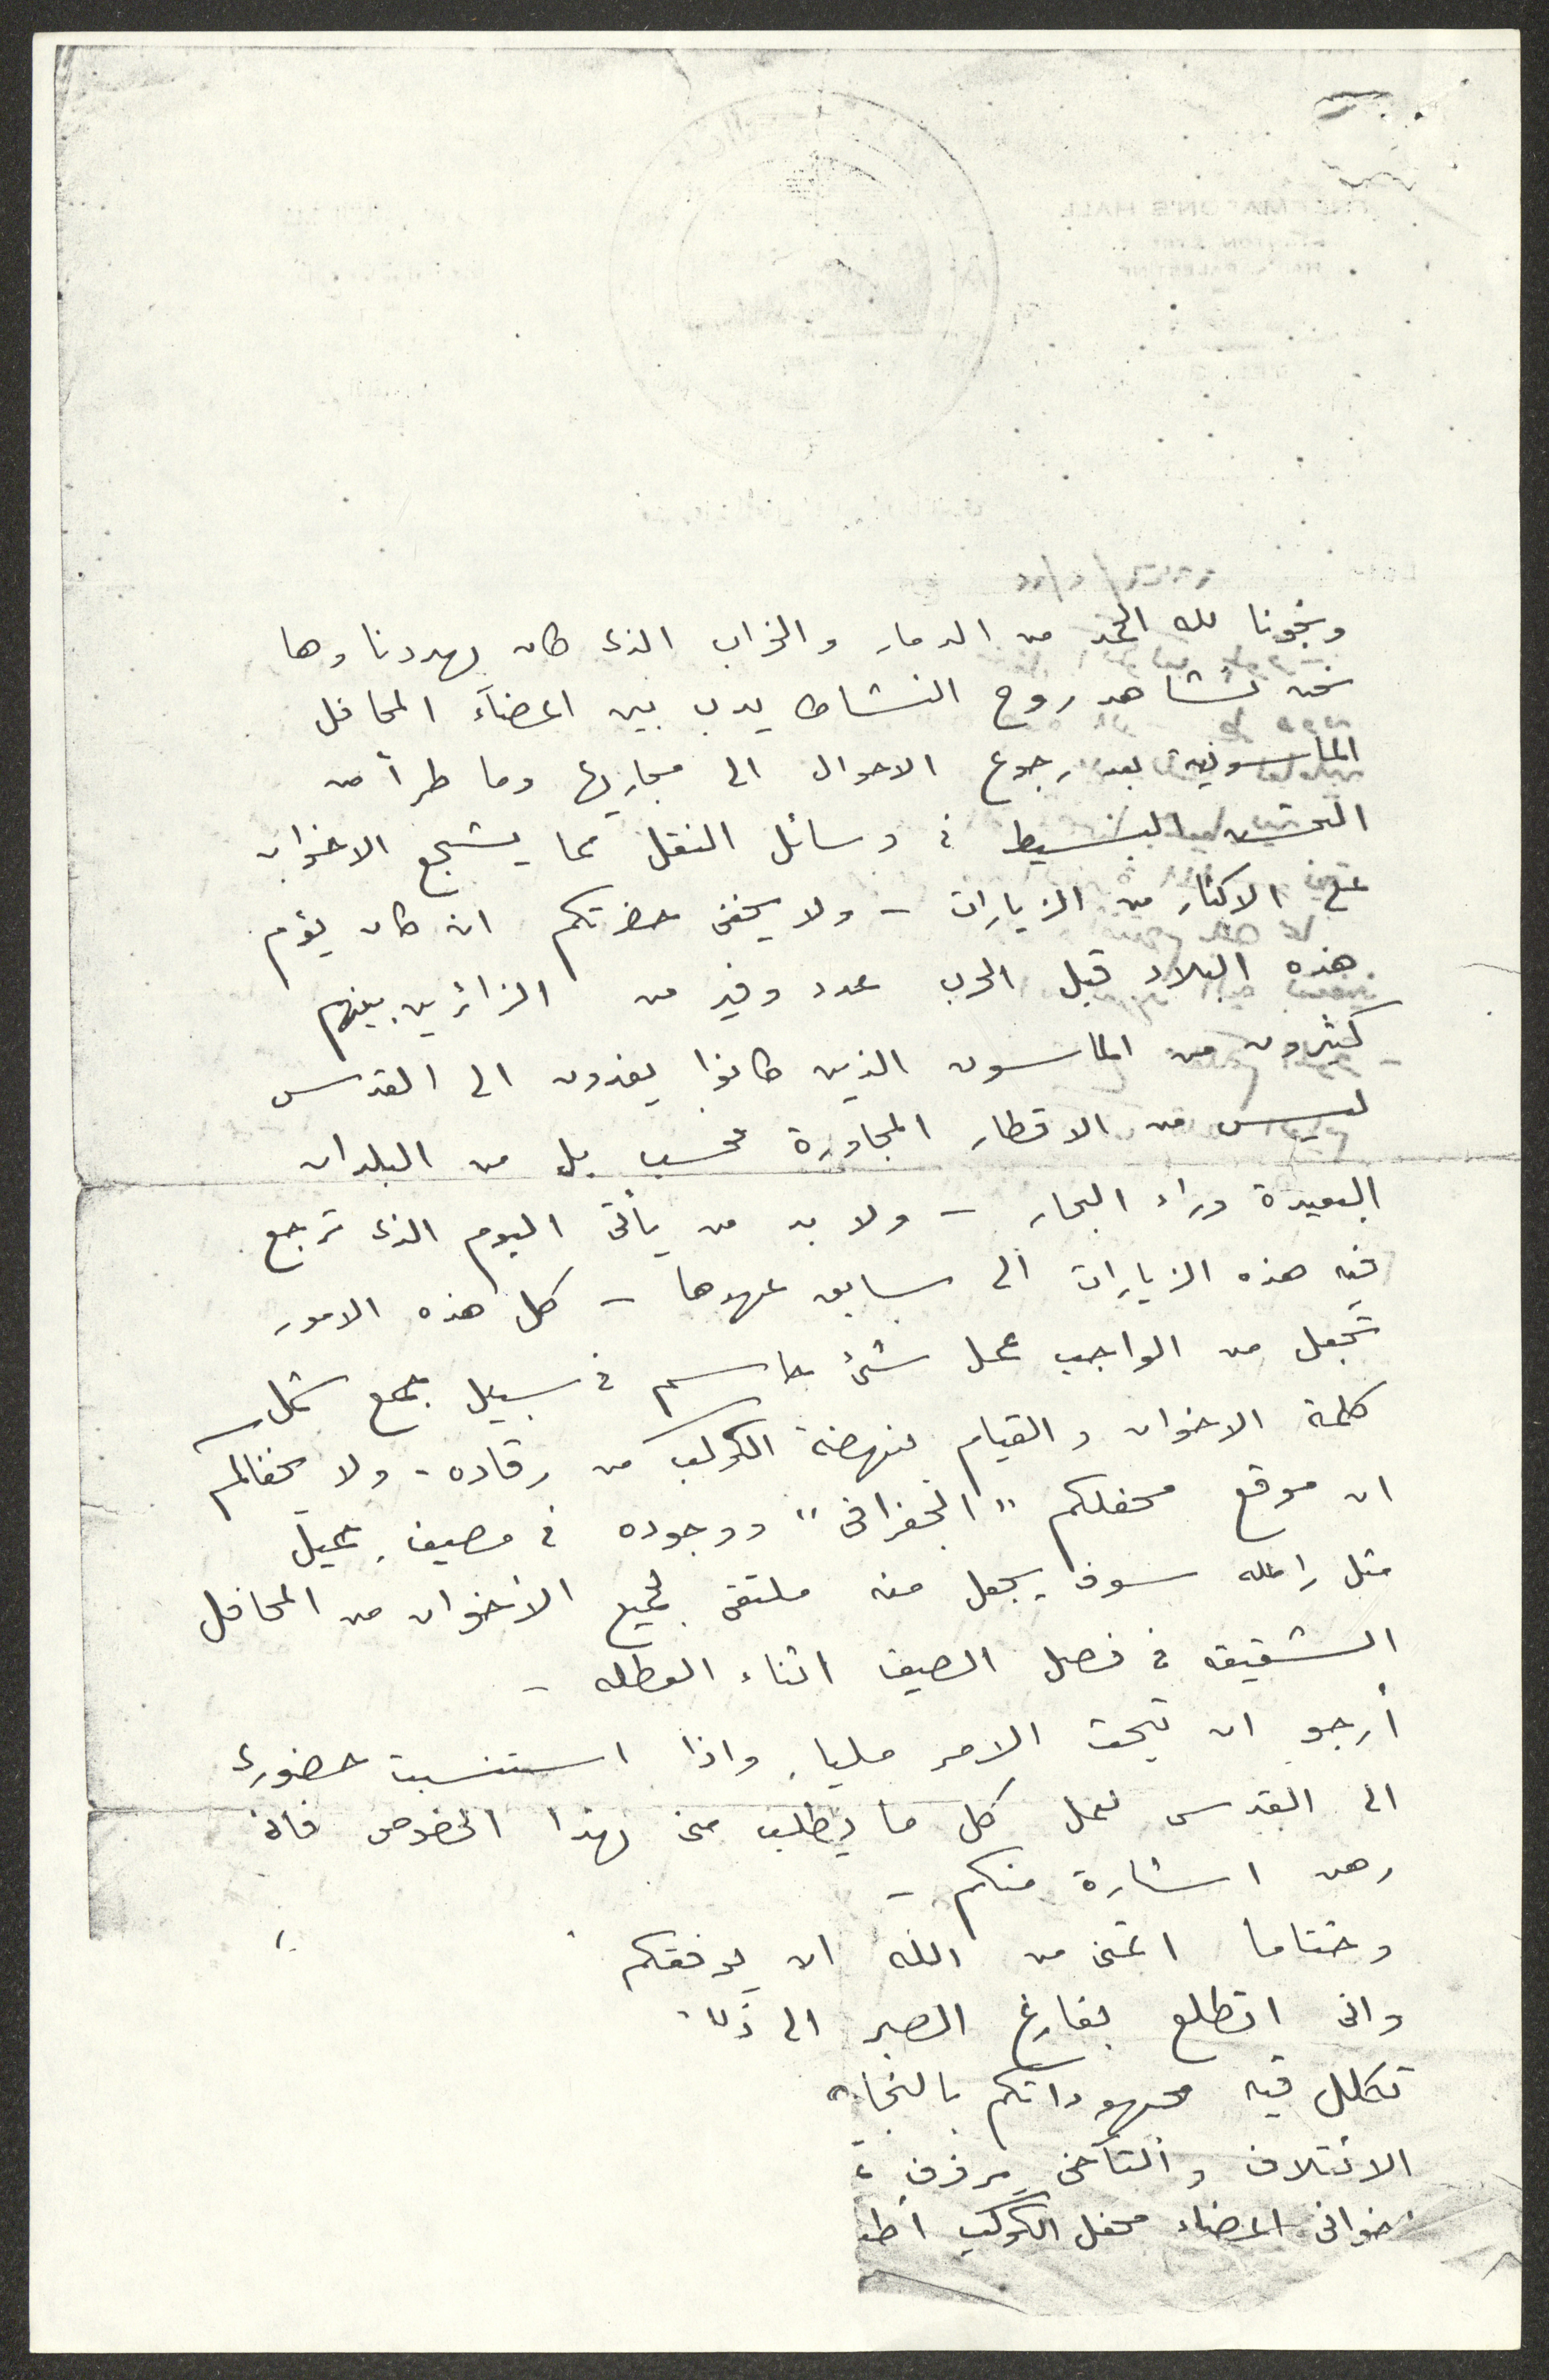 ونجونا لله الحمد من الدمار والخراب الذى كان يهددنا وها
نحن نشاهد روح النشاط يدب بين اعضآء المحافل
الماسونية بعد رجوع الاحوال الى مجاريها وما طرأ من
التحسن البسيط فى وسائل النقل مما يشجع الاخوان
على الاكثار من الزيارات - ولا يخفى حضرتكم ان كان يؤم
هذه البلاد قبل الحرب عدد وفير من الزائرين بينهم
كثيرون من الماسون الذين كانوا يفدون الى القدس
ليس من الاقطار المجاورة فحسب بل من البلدان
البعيدة وراء البحار - ولا بد من يأتى اليوم الذى ترجع
فيه هذه الزيارات الى سابق عهدها - كل هذه الامور
تجعل من الواجب عمل شئ حاسم فى سبيل جمع شمل
كلمة الاخوان والقيام بنهضة الكوكب من رقاده - ولا يخفاكم
ان موقع محفلكم "الجغرافى" ووجوده فى مصيف جميل
مثل رام الله سوف يجعل منه ملتقى لجميع الأخوان من المحافل
الشقيقه فى فصل الصيف اثناء العطله -
أرجو ان تبحث الامر مليا، واذا استنسبت حضورى
الى القدس لعمل كل ما يطلب منى بهذا الخصوص فانى
رهن اشارة منكم -
وختاما اتمنى من الله ان يوفقكم
وانى اتطلع بفارغ الصبر الى
تكلل فيه مجهوداتكم
الائتلاف والتآخى يرفرف
اخوانى اعضاء محفل الكوكب
FREEMASON'S HALL
PALESTINE